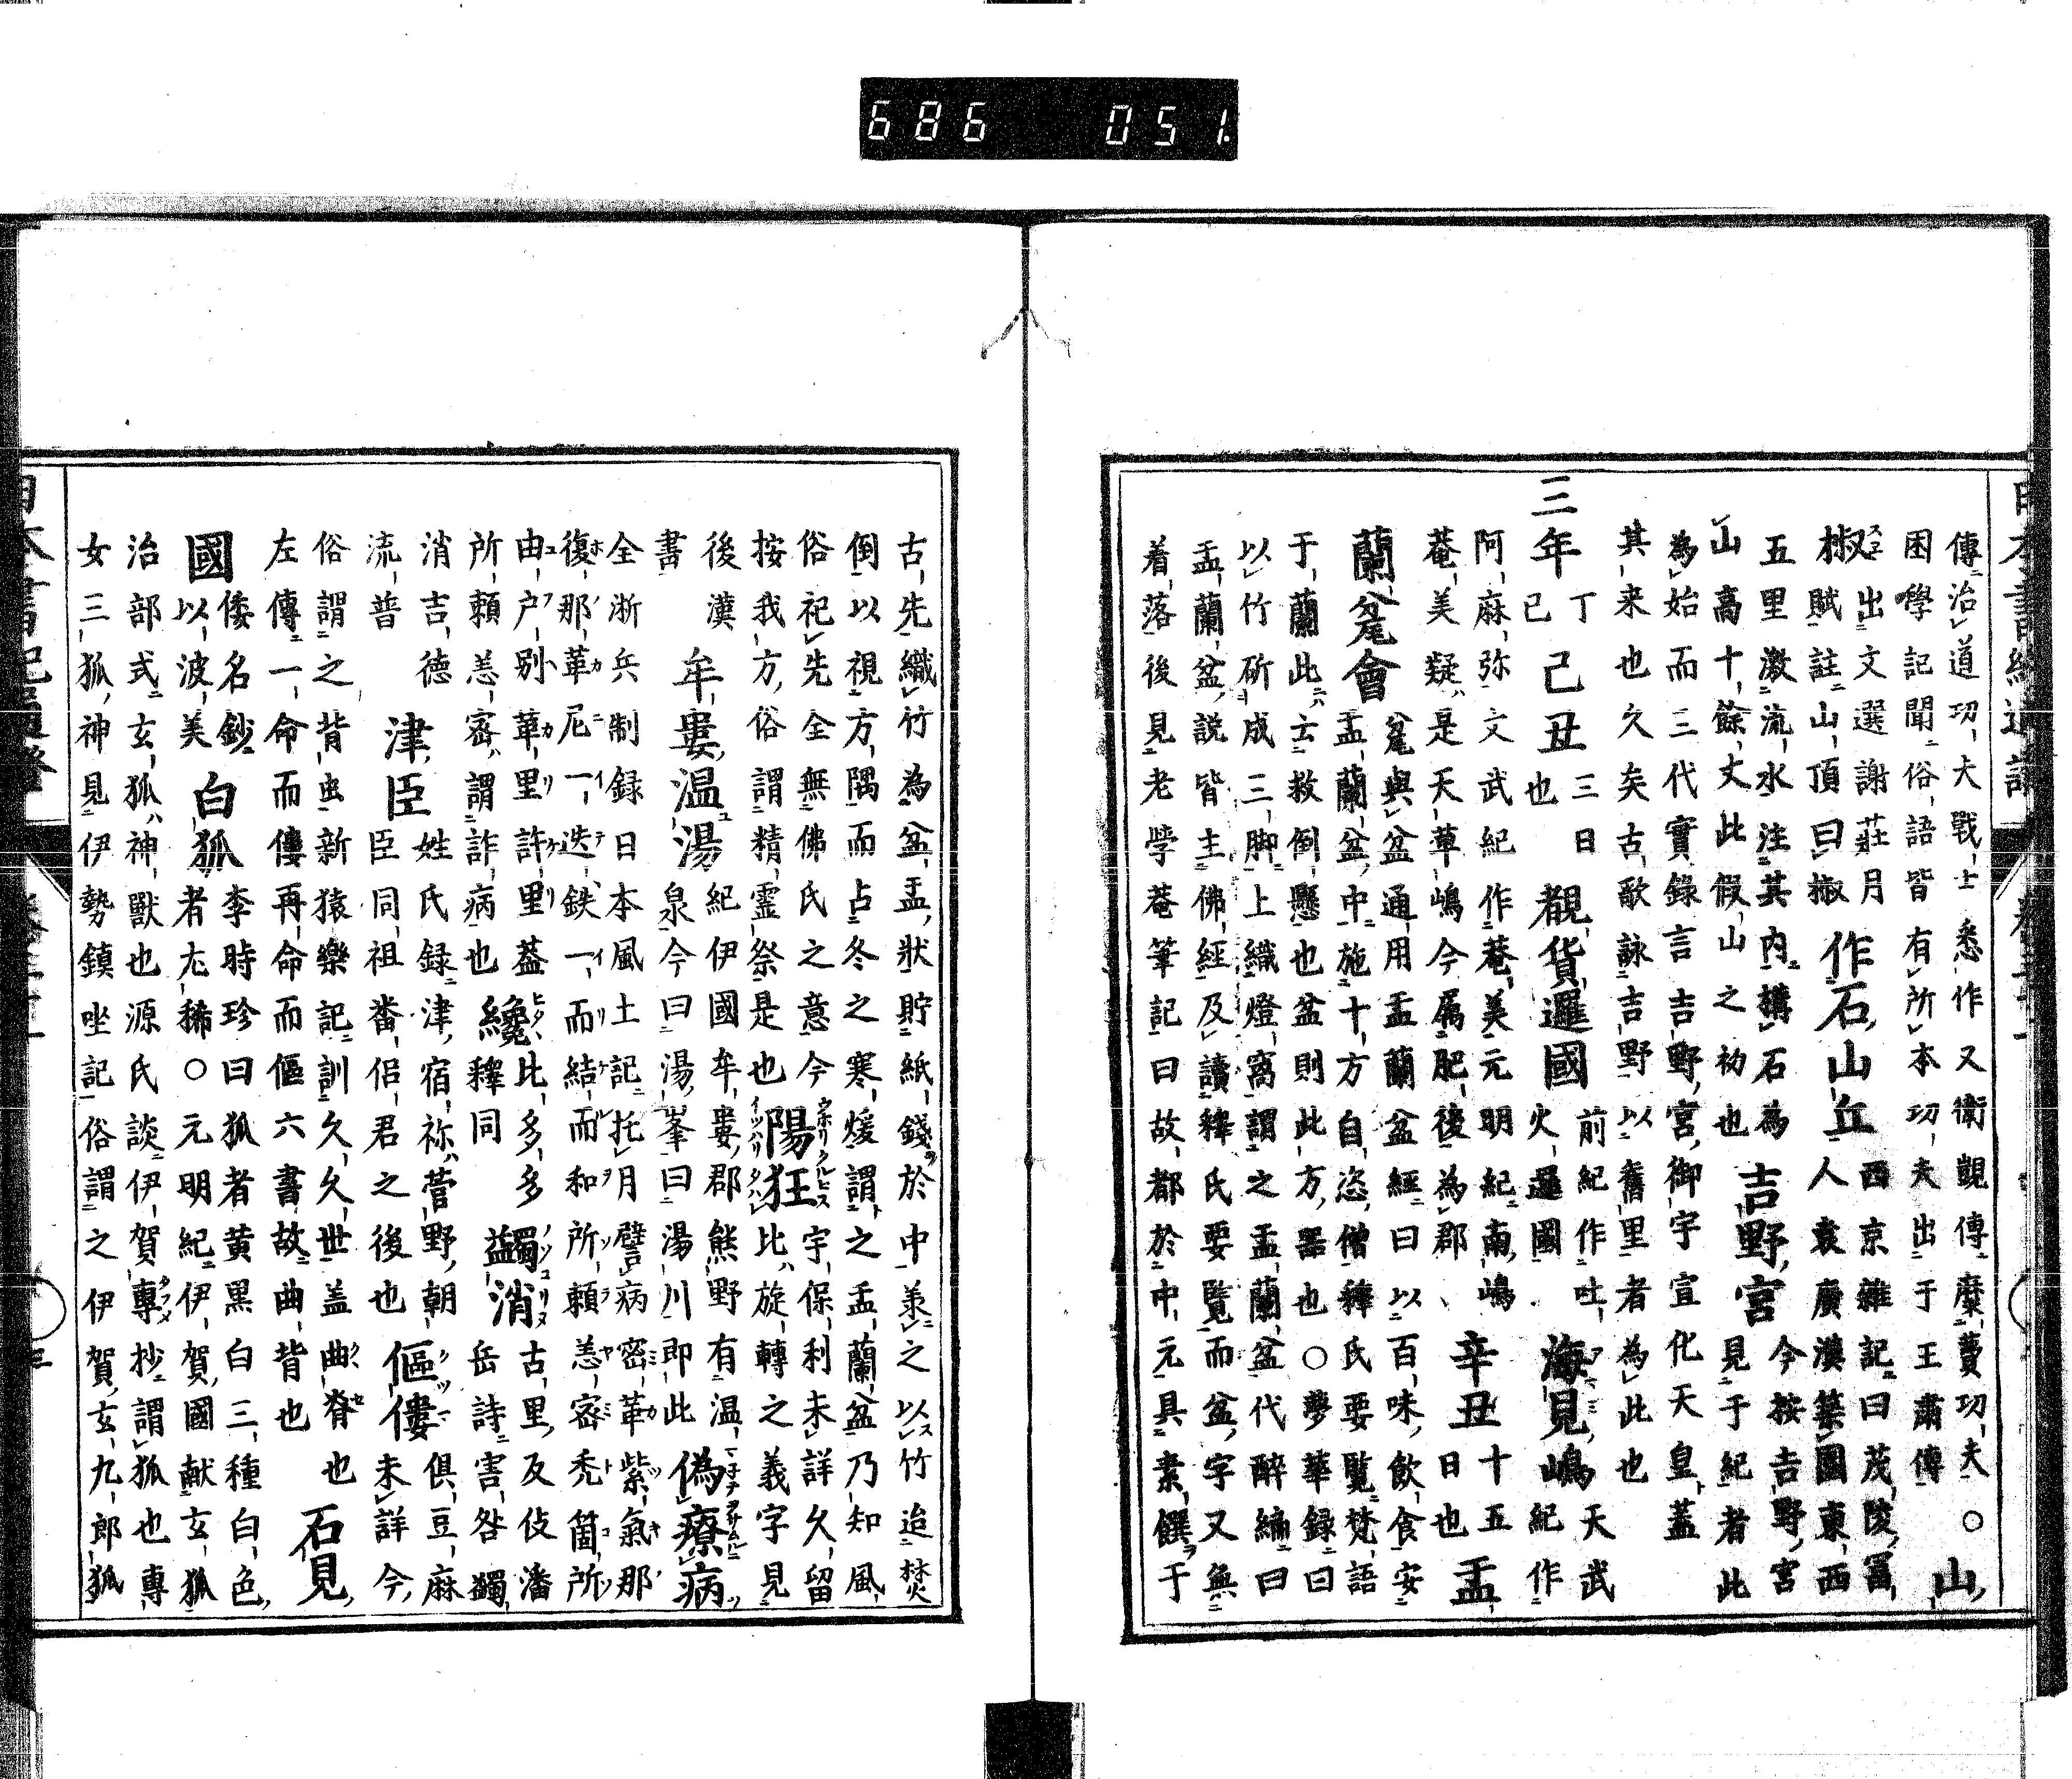 686 051.
傳治道功大戰士悉作又衛覬傳糜費功夫○山
困學記聞俗語皆有所本功夫出于王肅傳
椒出文選謝莊月
賦註山頂曰椒
作石山丘
西京雜記曰茂陵富
人袁廣漢築園東西
五里激流水注其内構石為
山高十餘丈此假山之初也
吉野宮
今按吉野宮
見于紀者此
為始而三代實錄言吉野宮御宇宣化天皇蓋
其来也久矣古歌詠吉野以舊里者為此也
三年
丁
己
己丑
三日
也
覩貨邏國
前紀作吐
火邏國
海見嶋
天武
紀作
阿麻弥文武紀作菴美元明紀南嶋
菴美疑是天草嶋今属肥後為郡
辛丑
十五
日也
盂
蘭瓫會
瓫與盆通用盂蘭盆經曰以百味飲食安
盂蘭盆中施十方自恣僧釋氏要覧梵語
于蘭此云救倒懸也盆則此方器也○夢華録曰
以竹斫成三脚上織燈窩謂之盂蘭盆代醉編曰
盂蘭盆説皆主佛經及讀釋氏要覧而盆字又無
着落後見老學菴筆記曰故都於中元具素饌于
古先織竹為盆盂狀貯紙錢於中兼之以竹迨焚
倒以視方隅而占冬之寒煖謂之盂蘭盆乃知風
俗祀先全無佛氏之意今
按我方俗謂精霊祭是也
陽狂
宇保利未詳久留
比旋轉之義字見
後漢
書
牟婁温湯
紀伊國牟婁郡熊野有温
泉今曰湯峯曰湯川即此
偽療病
全浙兵制録日本風土記托月譬病密革紫氣那
復那革尼一迭鉄一而結而和所頼恙密禿箇所
由户别革里許里蓋
所頼恙密謂詐病也
纔
比多多
釋同
蠲消
古里反伎潘
岳詩害咎蠲
消吉徳
流普
津臣
姓氏録津宿祢菅野朝
臣同祖畨侶君之後也
傴僂
俱豆麻
未詳今
俗謂之背虫新猿樂記訓久久世盖曲脊也
左傳一命而僂再命而傴六書故曲背也
石見
國
倭名鈔
以波美
白狐
李時珍曰狐者黄黒白三種白色
者尤稀○元明紀伊賀國献玄狐
治部式玄狐神獸也源氏談伊賀專抄謂狐也專
女三狐神見伊勢鎮坐記俗謂之伊賀玄九郎狐